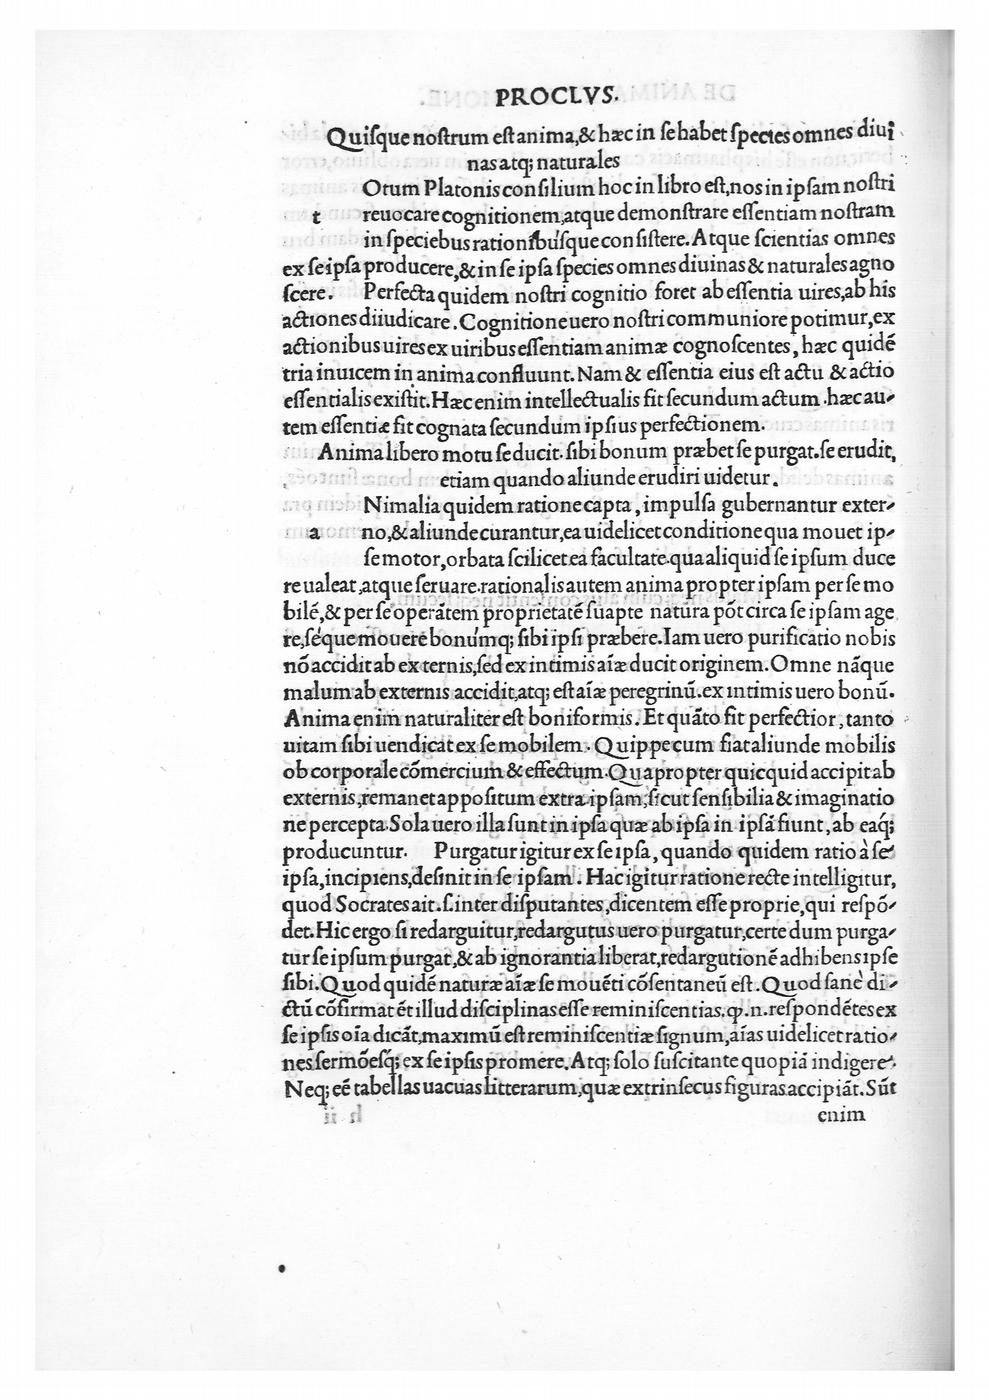 PROCLVS.
Quiſque noſtrum eſt anima,& hæc in ſe habet ſpecies omnes diui
nas atq; naturales
Otum Platonis conſilium hoc in libro eſt,nos in ipſam noſtri
t reuocare cognitionem,atque demonſtrare eſſentiam noſtram
in ſpeciebus rationibuſque conſiſtere. Atque ſcientias omnes
ex ſe ipſa producere,& in ſe ipſa ſpecies omnes diuinas & naturales agno
ſcere. Perfecta quidem noſtri cognitio foret ab eſſentia uires,ab his
actiones diiudicare. Cognitione uero noſtri communiore potimur,ex
actionibus uires ex uiribus eſſentiam animæ cognoſcentes, hæc quidē
tria inuicem in anima confluunt. Nam & eſſentia eius eſt actu & actio
eſſentialis exiſtit. Hæc enim intellectualis fit ſecundum actum .hæc au-
tem eſſentiæ fit cognata ſecundum ipſius perfectionem.
Anima libero motu ſe ducit. ſibi bonum præbet ſe purgat.ſe erudit,
etiam quando aliunde erudiri uidetur.
Nimalia quidem ratione capta, impulſa gubernantur exter-
a no,& aliunde curantur,ea uidelicet conditione qua mouet ip-
ſe motor,orbata ſcilicet ea facultate.qua aliquid ſe ipſum duce
re ualeat,atque ſeruare.rationalis autem anima propter ipſam per ſe mo
bilē,& per ſe operātem proprietatē ſuapte natura pōt circa ſe ipſam age
re,ſéque mouere bonúmq; ſibi ipſi præbere.Iam uero purificatio nobis
nō accidit ab externis,ſed ex intimis aīæ ducit originem.Omne nāque
malum ab externis accidit,atq; eſt aīæ peregrinū.ex intimis uero bonū.
Anima enim naturaliter eſt boniformis. Et quāto fit perfectior,tanto
uitam ſibi uendicat ex ſe mobilem. Quippe cum fiat aliunde mobilis
ob corporale cōmercium & effectum.Quapropter quicquid accipit ab
externis,remanet appoſitum extra ipſam,ſicut ſenſibilia & imaginatio
ne percepta.Sola uero illa ſunt in ipſa quæ ab ipſa in ipſā fiunt,ab eaq́;
producuntur. Purgatur igitur ex ſe ipſa, quando quidem ratio à ſe
ipſa,incipiens,deſinit in ſe ipſam. Hac igitur ratione recte intelligitur,
quod Socrates ait.ſ.inter diſputantes,dicentem eſſe proprie,qui reſpō-
det.Hic ergo ſi redarguitur,redargutus uero purgatur,certe dum purga-
tur ſe ipſum purgat,& ab ignorantia liberat,redargutionē adhibens ipſe
ſibi.Quod quidē naturæ aīæ ſe mouēti cōſentaneū eſt.Quod ſanè di-
ctū cōfirmat ēt illud diſciplinas eſſe reminiſcentias.ꝙ.n.reſpondētes ex
ſe ipſis oīa dicāt,maximū eſt reminiſcentiæ ſignum,aīas uidelicet ratio-
nes ſermōeſq́; ex ſe ipſis promere.Atq; ſolo ſuſcitante quopiā indigere.
Neq; eē tabellas uacuas litterarum,quæ extrinſecus figuras accipiāt.Sūt
enim